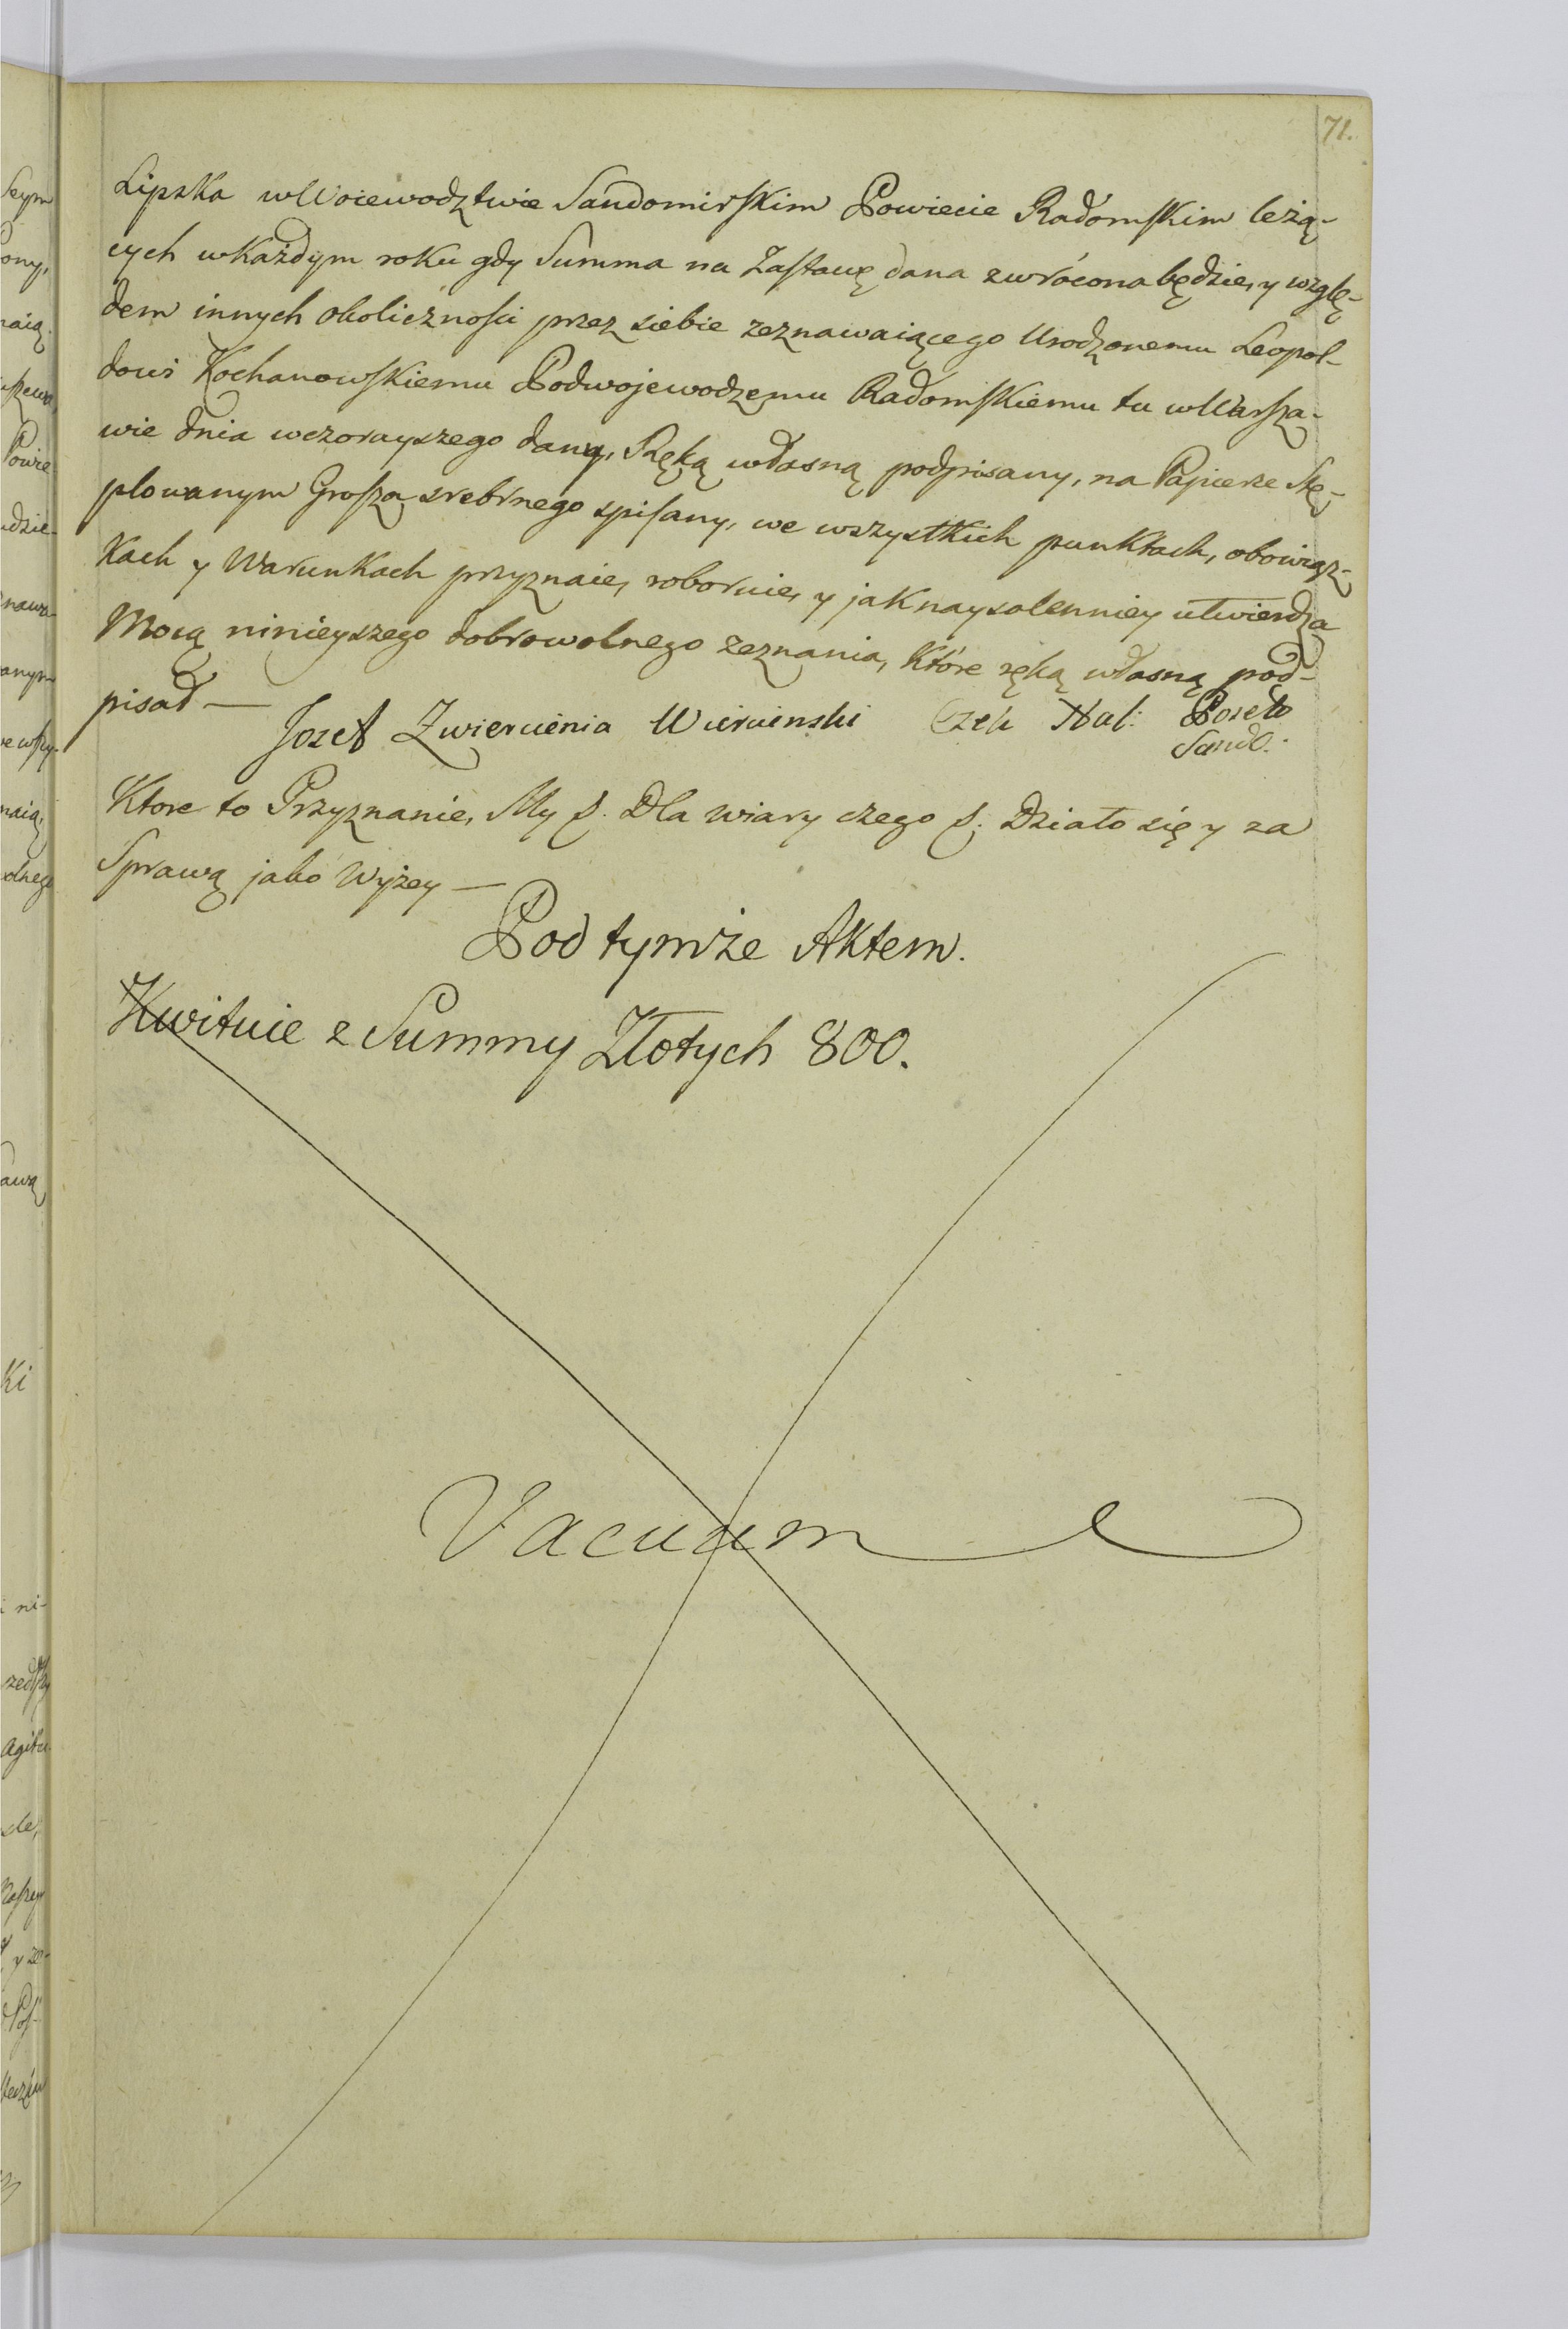 71.
Lipska w Woiewodztwie Sandomirskim Powiecie Radomskim leżą-
cych w każdym roku gdy Summa na Zastawę dana zwrócona będzie, y wzglę-
dem innych okoliczności przez siebie zeznawaiącego Urodzonemu Leopol-
dowi Kochanowskiemu Podwojewodzemu Radomskiemu tu w Warsza-
wie dnia wczorayszego dany, Ręką własną podpisany, na Papierze Stę-
plowanym Grosza srebrnego spisany, we wszystkich punktach, obowiąz-
kach y Warunkach przyznaie, roboruie, y jak naysolenniey utwierdza
Mocą ninieyszego dobrowolnego zeznania, które ręką własną pod-
pisał —
Jozef Zwiercienia Wiercienski Czek Hal: Poseł
Sand.
Ktore to Przyznanie, My &. Dla wiary czego &. Działo się y za
Sprawą jako Wyżey —
Pod tymże Aktem.
Kwituie z Summy Złotych 800.
Vacuum